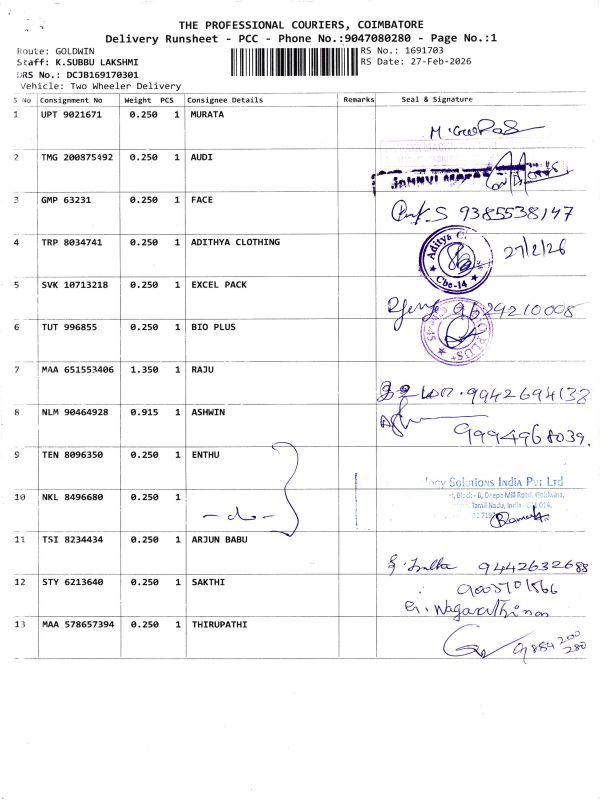 THE PROFESSIONAL COURIERS, COIMBATORE
Delivery Runsheet - PCC - Phone No.:9047080280 - Page No.:1
Route: GOLDWIN
RS No.: 1691703
Staff: K.SUBBU LAKSHMI
RS Date: 27-Feb-2026
DRS No.: DCJB169170301
Vehicle: Two Wheeler Delivery
S No Consignment No Weight PCS Consignee Details Remarks Seal & Signature
1 UPT 9021671 0.250 1 MURATA
2 TMG 200875492 0.250 1 AUDI
3 GMP 63231 0.250 1 FACE
9385538147
4 TRP 8034741 0.250 1 ADITHYA CLOTHING
Aditya C.
Cbe-14
27/2/26
5 SVK 10713218 0.250 1 EXCEL PACK
9629210008
6 TUT 996855 0.250 1 BIO PLUS
7 MAA 651553406 1.350 1 RAJU
9942694138
8 NLM 90464928 0.915 1 ASHWIN
9994968039.
9 TEN 8096350 0.250 1 ENTHU
Solutions India Pvt Ltd
Block - B, Deepa Mill Road, Goldwins,
Tamil Nadu, India - 641 014.
10 NKL 8496680 0.250 1 -do-
11 TSI 8234434 0.250 1 ARJUN BABU
9442632688
12 STY 6213640 0.250 1 SAKTHI
13 MAA 578657394 0.250 1 THIRUPATHI